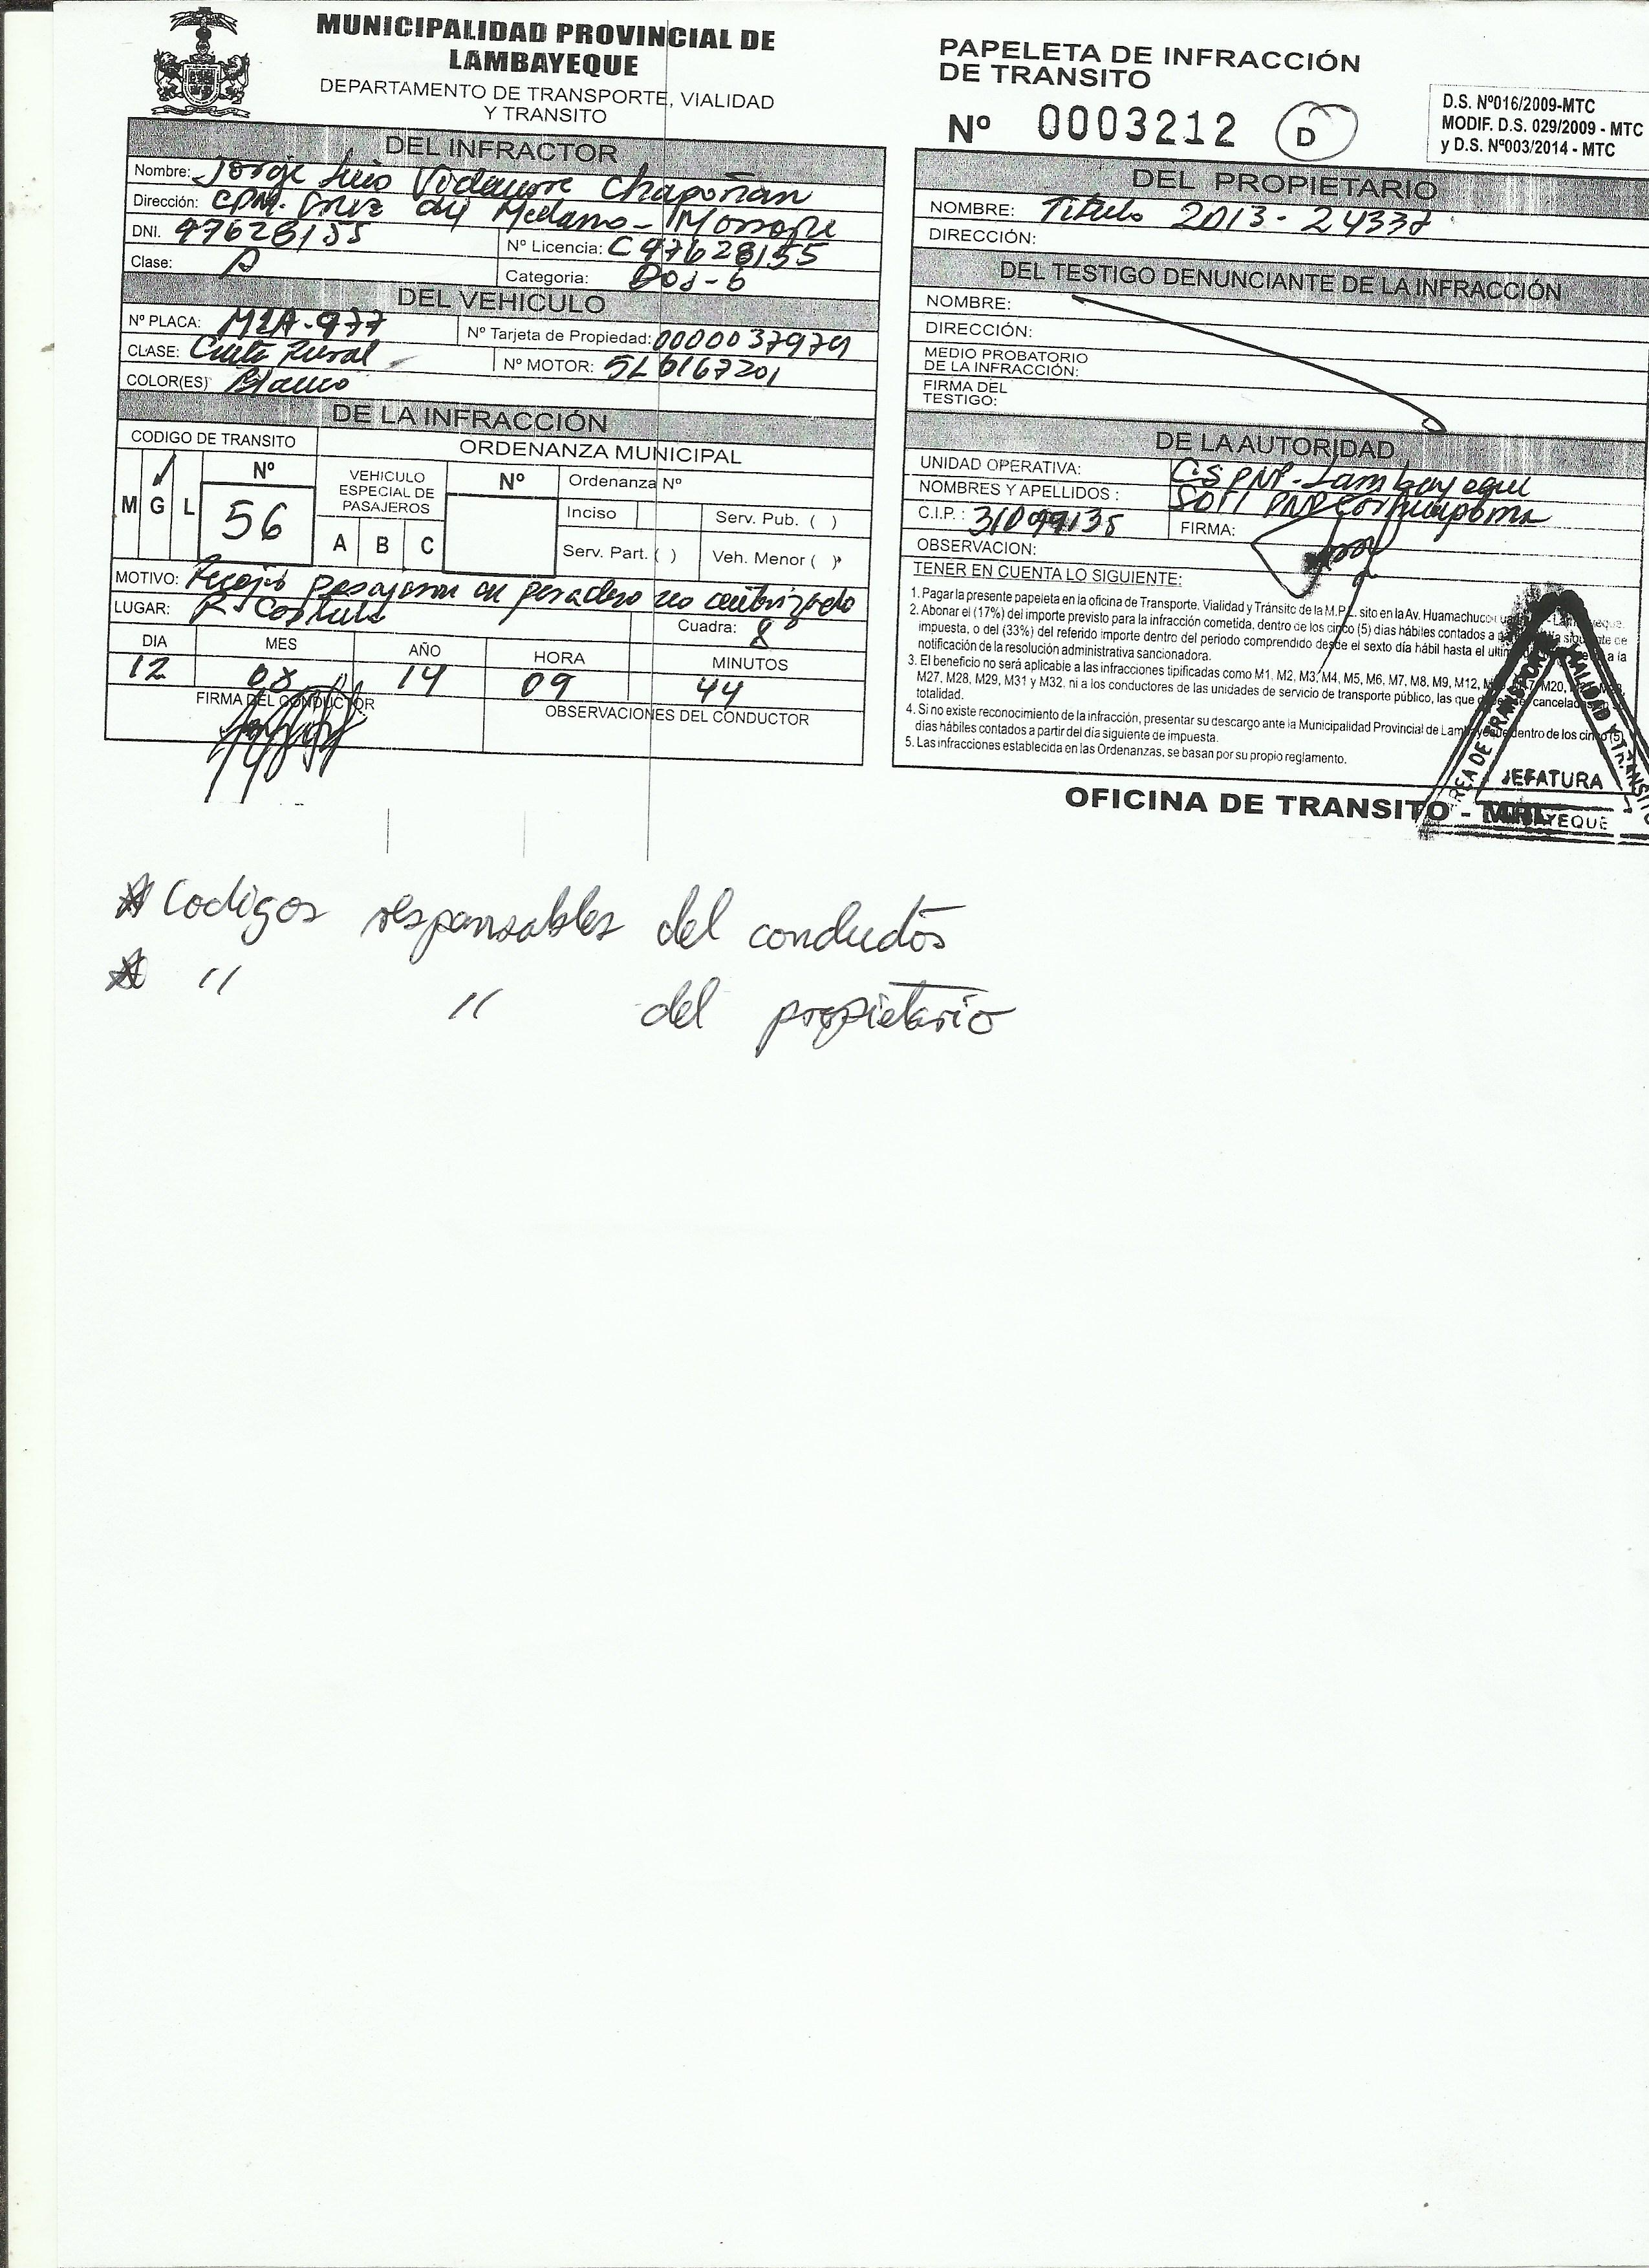 MUNICIPALIDAD PROVINCIAL DE
LAMBAYEQUE
DEPARTAMENTO DE TRANSPORTE, VIALIDAD
Y TRANSITO
DEL INFRACTOR
Nombre: Jorge Luis Vidaurre Chapoñan
Dirección: CPM. Cruz del Medano - Morrope
DNI. 47628155
Nº Licencia: C47628155
Clase: A
Categoria: Dos-b
DEL VEHICULO
Nº PLACA: M2A-977
Nº Tarjeta de Propiedad: 0000037979
CLASE: Cmta Rural
Nº MOTOR: 5L6167201
COLOR(ES) Blanco
DE LA INFRACCIÓN
CODIGO DE TRANSITO
ORDENANZA MUNICIPAL
M G L
Nº
56
VEHICULO
ESPECIAL DE
PASAJEROS
A B C
Nº
Ordenanza Nº
Inciso
Serv. Pub. ( )
Serv. Part. ( )
Veh. Menor ( )
MOTIVO: Recojo pasajeros en paradero no autorizado
LUGAR: R. Castilla
Cuadra: 8
DIA MES AÑO HORA MINUTOS
12 08 14 09 44
FIRMA DEL CONDUCTOR
OBSERVACIONES DEL CONDUCTOR
PAPELETA DE INFRACCIÓN
DE TRANSITO
Nº 0003212 D
D.S. Nº016/2009-MTC
MODIF. D.S. 029/2009 - MTC
y D.S. Nº003/2014 - MTC
DEL PROPIETARIO
NOMBRE: Titulo 2013-24337
DIRECCIÓN:
DEL TESTIGO DENUNCIANTE DE LA INFRACCIÓN
NOMBRE:
DIRECCIÓN:
MEDIO PROBATORIO
DE LA INFRACCIÓN:
FIRMA DEL
TESTIGO:
DE LA AUTORIDAD
UNIDAD OPERATIVA: CS PNP - Lambayeque
NOMBRES Y APELLIDOS : SOT1 PNP
C.I.P. : 31099135
FIRMA:
OBSERVACION:
TENER EN CUENTA LO SIGUIENTE:
1. Pagar la presente papeleta en la oficina de Transporte, Vialidad y Tránsito de la M.P.L. sito en la Av. Huamachuco - Lambayeque.
2. Abonar el (17%) del importe previsto para la infracción cometida, dentro de los cinco (5) días hábiles contados a siguiente de
impuesta, o del (33%) del referido importe dentro del periodo comprendido desde el sexto día hábil hasta el a la
notificación de la resolución administrativa sancionadora.
3. El beneficio no será aplicable a las infracciones tipificadas como M1, M2, M3, M4, M5, M6, M7, M8, M9, M12, M20,
M27, M28, M29, M31 y M32. ni a los conductores de las unidades de servicio de transporte público, las que
totalidad.
4. Si no existe reconocimiento de la infracción, presentar su descargo ante la Municipalidad Provincial de Lambayeque dentro de los cinco (5)
días hábiles contados a partir del día siguiente de impuesta.
5. Las infracciones establecida en las Ordenanzas, se basan por su propio reglamento.
OFICINA DE TRANSITO - MPL
AREA DE TRANSPORTE VIALIDAD Y TRANSITO
JEFATURA
LAMBAYEQUE
* Codigos responsables del conductor
* " " del propietario